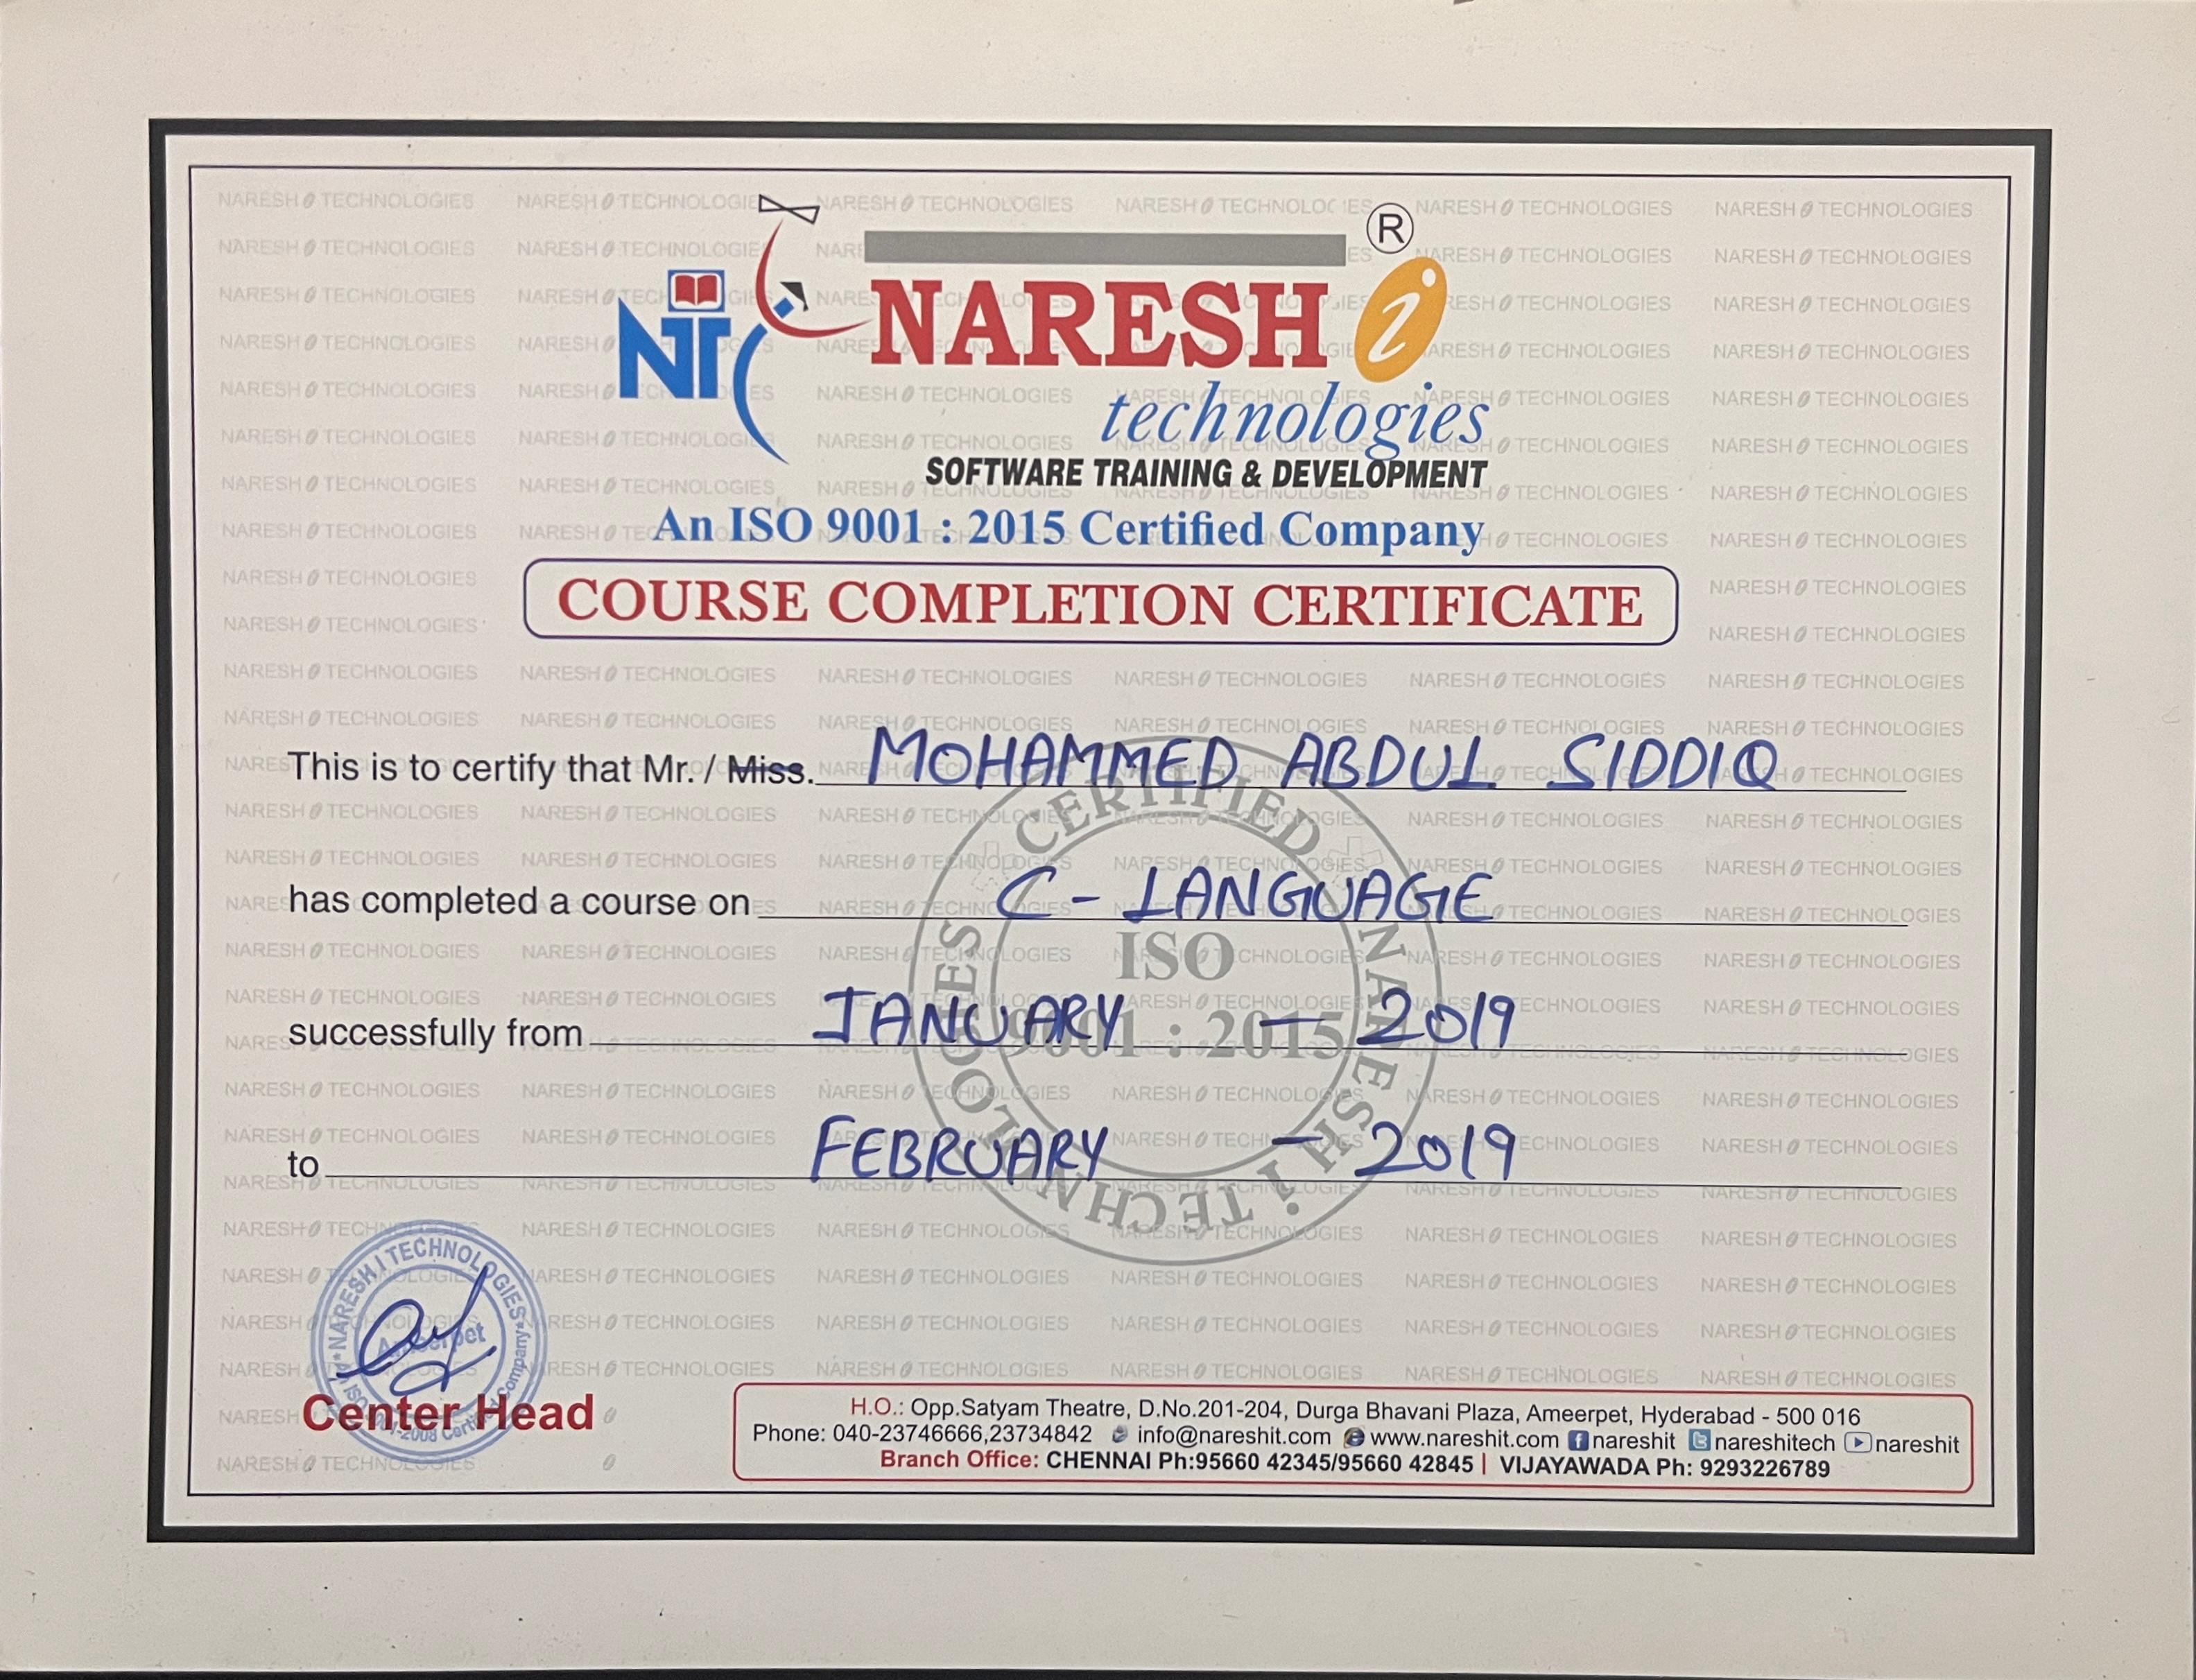 NT
®
NARESH i
technologies
SOFTWARE TRAINING & DEVELOPMENT
An ISO 9001 : 2015 Certified Company
COURSE COMPLETION CERTIFICATE
This is to certify that Mr. / Miss. MOHAMMED ABDUL SIDDIQ
has completed a course on C - LANGUAGE
successfully from JANUARY - 2019
to FEBRUARY - 2019
CERTIFIED NARESH i TECHNOLOGIES
ISO
9001 : 2015
NARESH i TECHNOLOGIES
Ameerpet
Center Head
H.O.: Opp.Satyam Theatre, D.No.201-204, Durga Bhavani Plaza, Ameerpet, Hyderabad - 500 016
Phone: 040-23746666,23734842 info@nareshit.com www.nareshit.com nareshit nareshitech nareshit
Branch Office: CHENNAI Ph:95660 42345/95660 42845 | VIJAYAWADA Ph: 9293226789